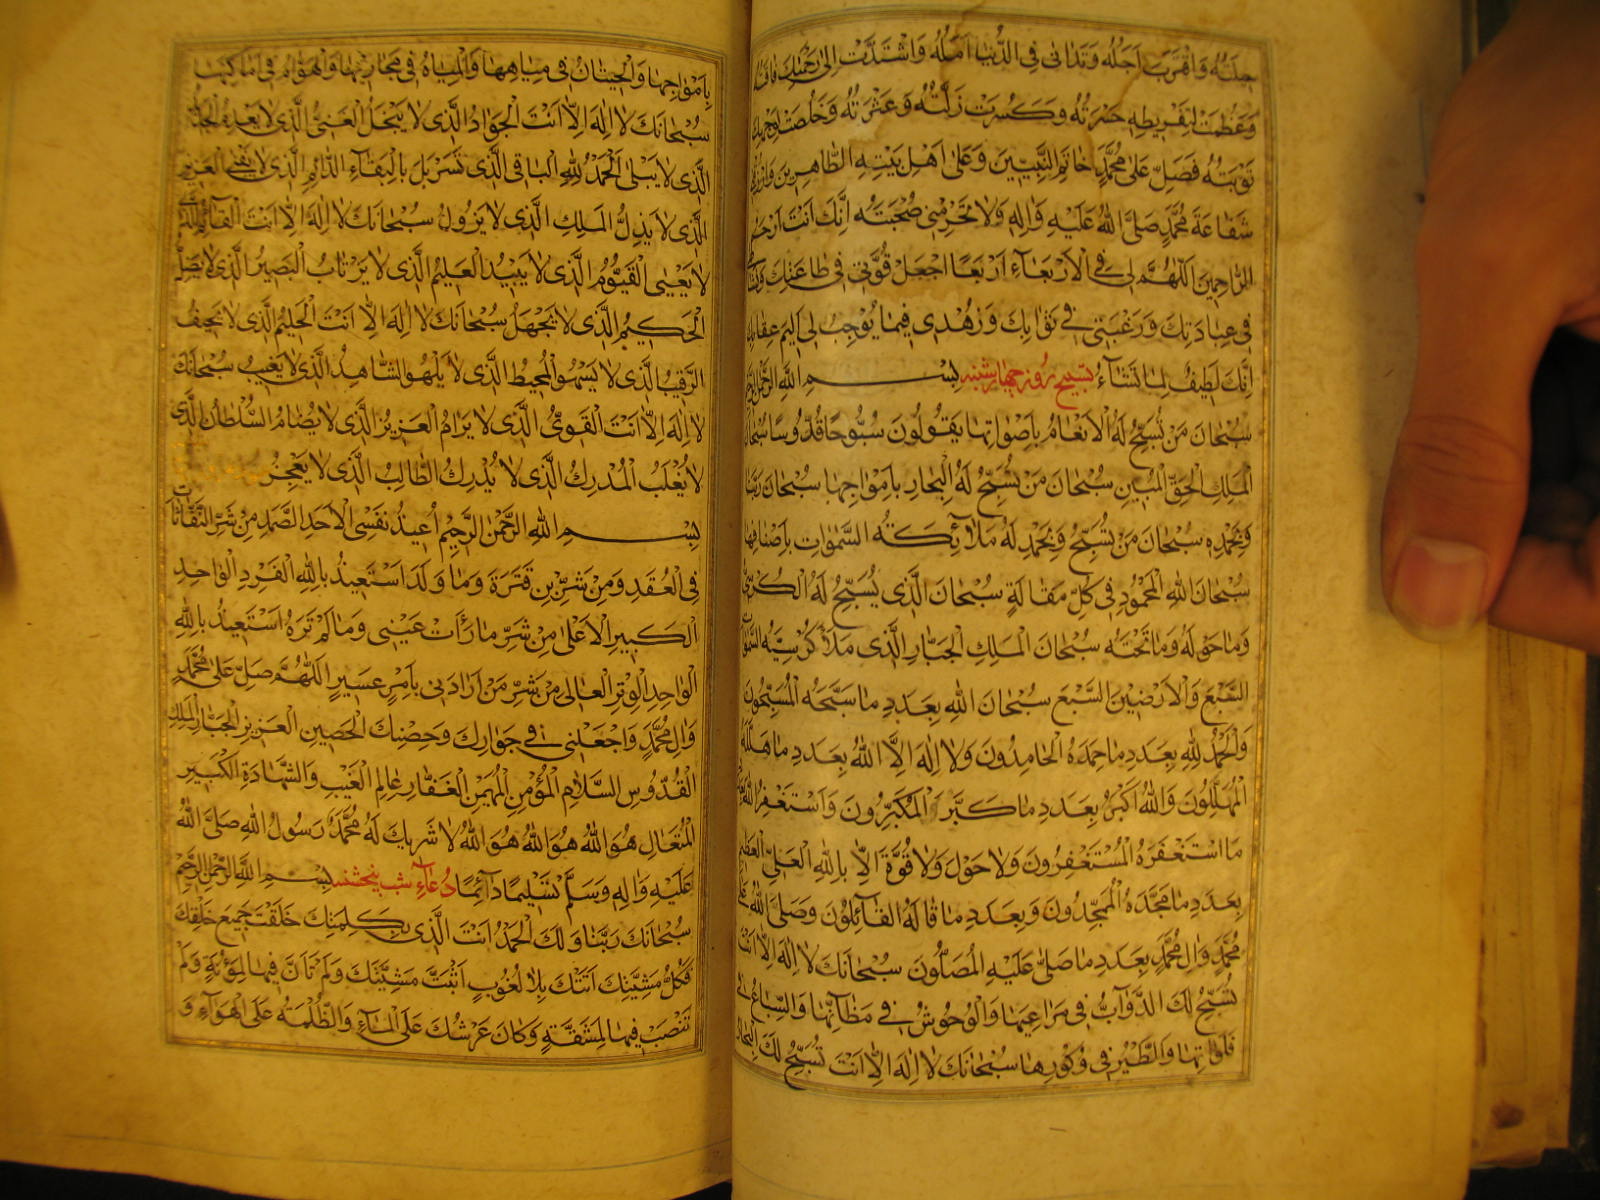 حیلته واقترب اجله وتدانی فی الدنیا امله واشتدت الی رحمتك فاقته
وعظمت لتفریطه حسرته وكثرت زلته وعثرته وخلصت لوجهك
توبته فصل علی محمد خاتم النبیین وعلی اهل بیته الطاهرین وارزقنی
شفاعة محمد صلی الله علیه واله ولا تحرمنی صحبته انك انت ارحم
الراحمین اللهم اقض لی فی الاربعاء اربعا اجعل قوتی فی طاعتك ونشاطی
فی عبادتك ورغبتی فی ثوابك وزهدی فیما یوجب لی الیم عقابك
انك لطیف لما تشاء تسبیح روز چهارشنبه بسم الله الرحمن الرحیم
سبحان من تسبح له الانعام باصواتها یقولون سبوحا قدوسا سبحان
الملك الحق المبین سبحان من تسبح له البحار بامواجها سبحان ربنا
وبحمده سبحان من تسبح وبحمد له ملائكته السموات باصنافها
سبحان الله المحمود فی كل مقالة سبحان الذی یسبح له الكرسی
وما حوله وما تحته سبحان الملك الجبار الذی ملأ كرسیه السموات
السبع والارضین السبع سبحان الله بعدد ما سبحه المسبحون
والحمد لله بعدد ما حمده الحامدون ولا اله الا الله بعدد ما هلله
المهللون والله اكبر بعدد ما كبر المكبرون واستغفر الله بعدد
ما استغفره المستغفرون ولا حول ولا قوة الا بالله العلی العظیم
بعدد ما مجده الممجدون وبعدد ما قاله القائلون وصلی الله علی
محمد وال محمد بعدد ما صلی علیه المصلون سبحانك لا اله الا انت
تسبح لك الدوآب فی مراعیها والوحوش فی مظآنها والسباع فی
فلواتها والطیر فی وكورها سبحانك لا اله الا انت تسبح لك البحار
بامواجها والحیتان فی میاهها والمیاه فی مجاریها والهوام فی اماكنها
سبحانك لا اله الا انت الجواد الذی لا یبخل الغنی الذی لا یعدم الجدید
الذی لا یبلی الحمد لله الباقی الذی تسربل بالبقاء الدائم الذی لا یفنی العزیز
الذی لا یذل الملك الذی لا یزول سبحانك لا اله الا انت القائم الذی
لا یعیی القیوم الذی لا یبید العلیم الذی لا یرتاب البصیر الذی لا یضل
الحكیم الذی لا یجهل سبحانك لا اله الا انت الحلیم الذی لا یحیف
الرقیب الذی لا یسهو المحیط الذی لا یلهو الشاهد الذی لا یغیب سبحانك
لا اله الا انت القوی الذی لا یرام العزیز الذی لا یضام السلطان الذی
لا یغلب المدرك الذی لا یدرك الطالب الذی لا یعجز
بسم الله الرحمن الرحیم أعیذ نفسی الاحد الصمد من شر النفاثات
فی العقد ومن شر بن قترة وما ولد استعیذ بالله الفرد الواحد
الكبیر الاعلی من شر ما رأت عینی وما لم تره استعیذ بالله
الواحد الوتر العالی من شر من ارادنی بامر عسیر اللهم صل علی محمد
وال محمد واجعلنی فی جوارك وحصنك الحصین العزیز الجبار الملك
القدوس السلام المؤمن المهیمن الغفار عالم الغیب والشهادة الكبیر
المتعال هو الله هو الله هو الله لا شریك له محمد رسول الله صلی الله
علیه واله وسلم تسلیما دآئما دعآء شب پنجشنبه بسم الله الرحمن الرحیم
سبحانك ربنا ولك الحمد انت الذی بكلمتك خلقت جمیع خلقك
فكل مشیتك اتتك بلا لغوب اثبت مشیتك ولم تأن فیها لمؤنة ولم
تنصب فیها لمشقة وكان عرشك علی المآء والظلمة علی الهوآء و